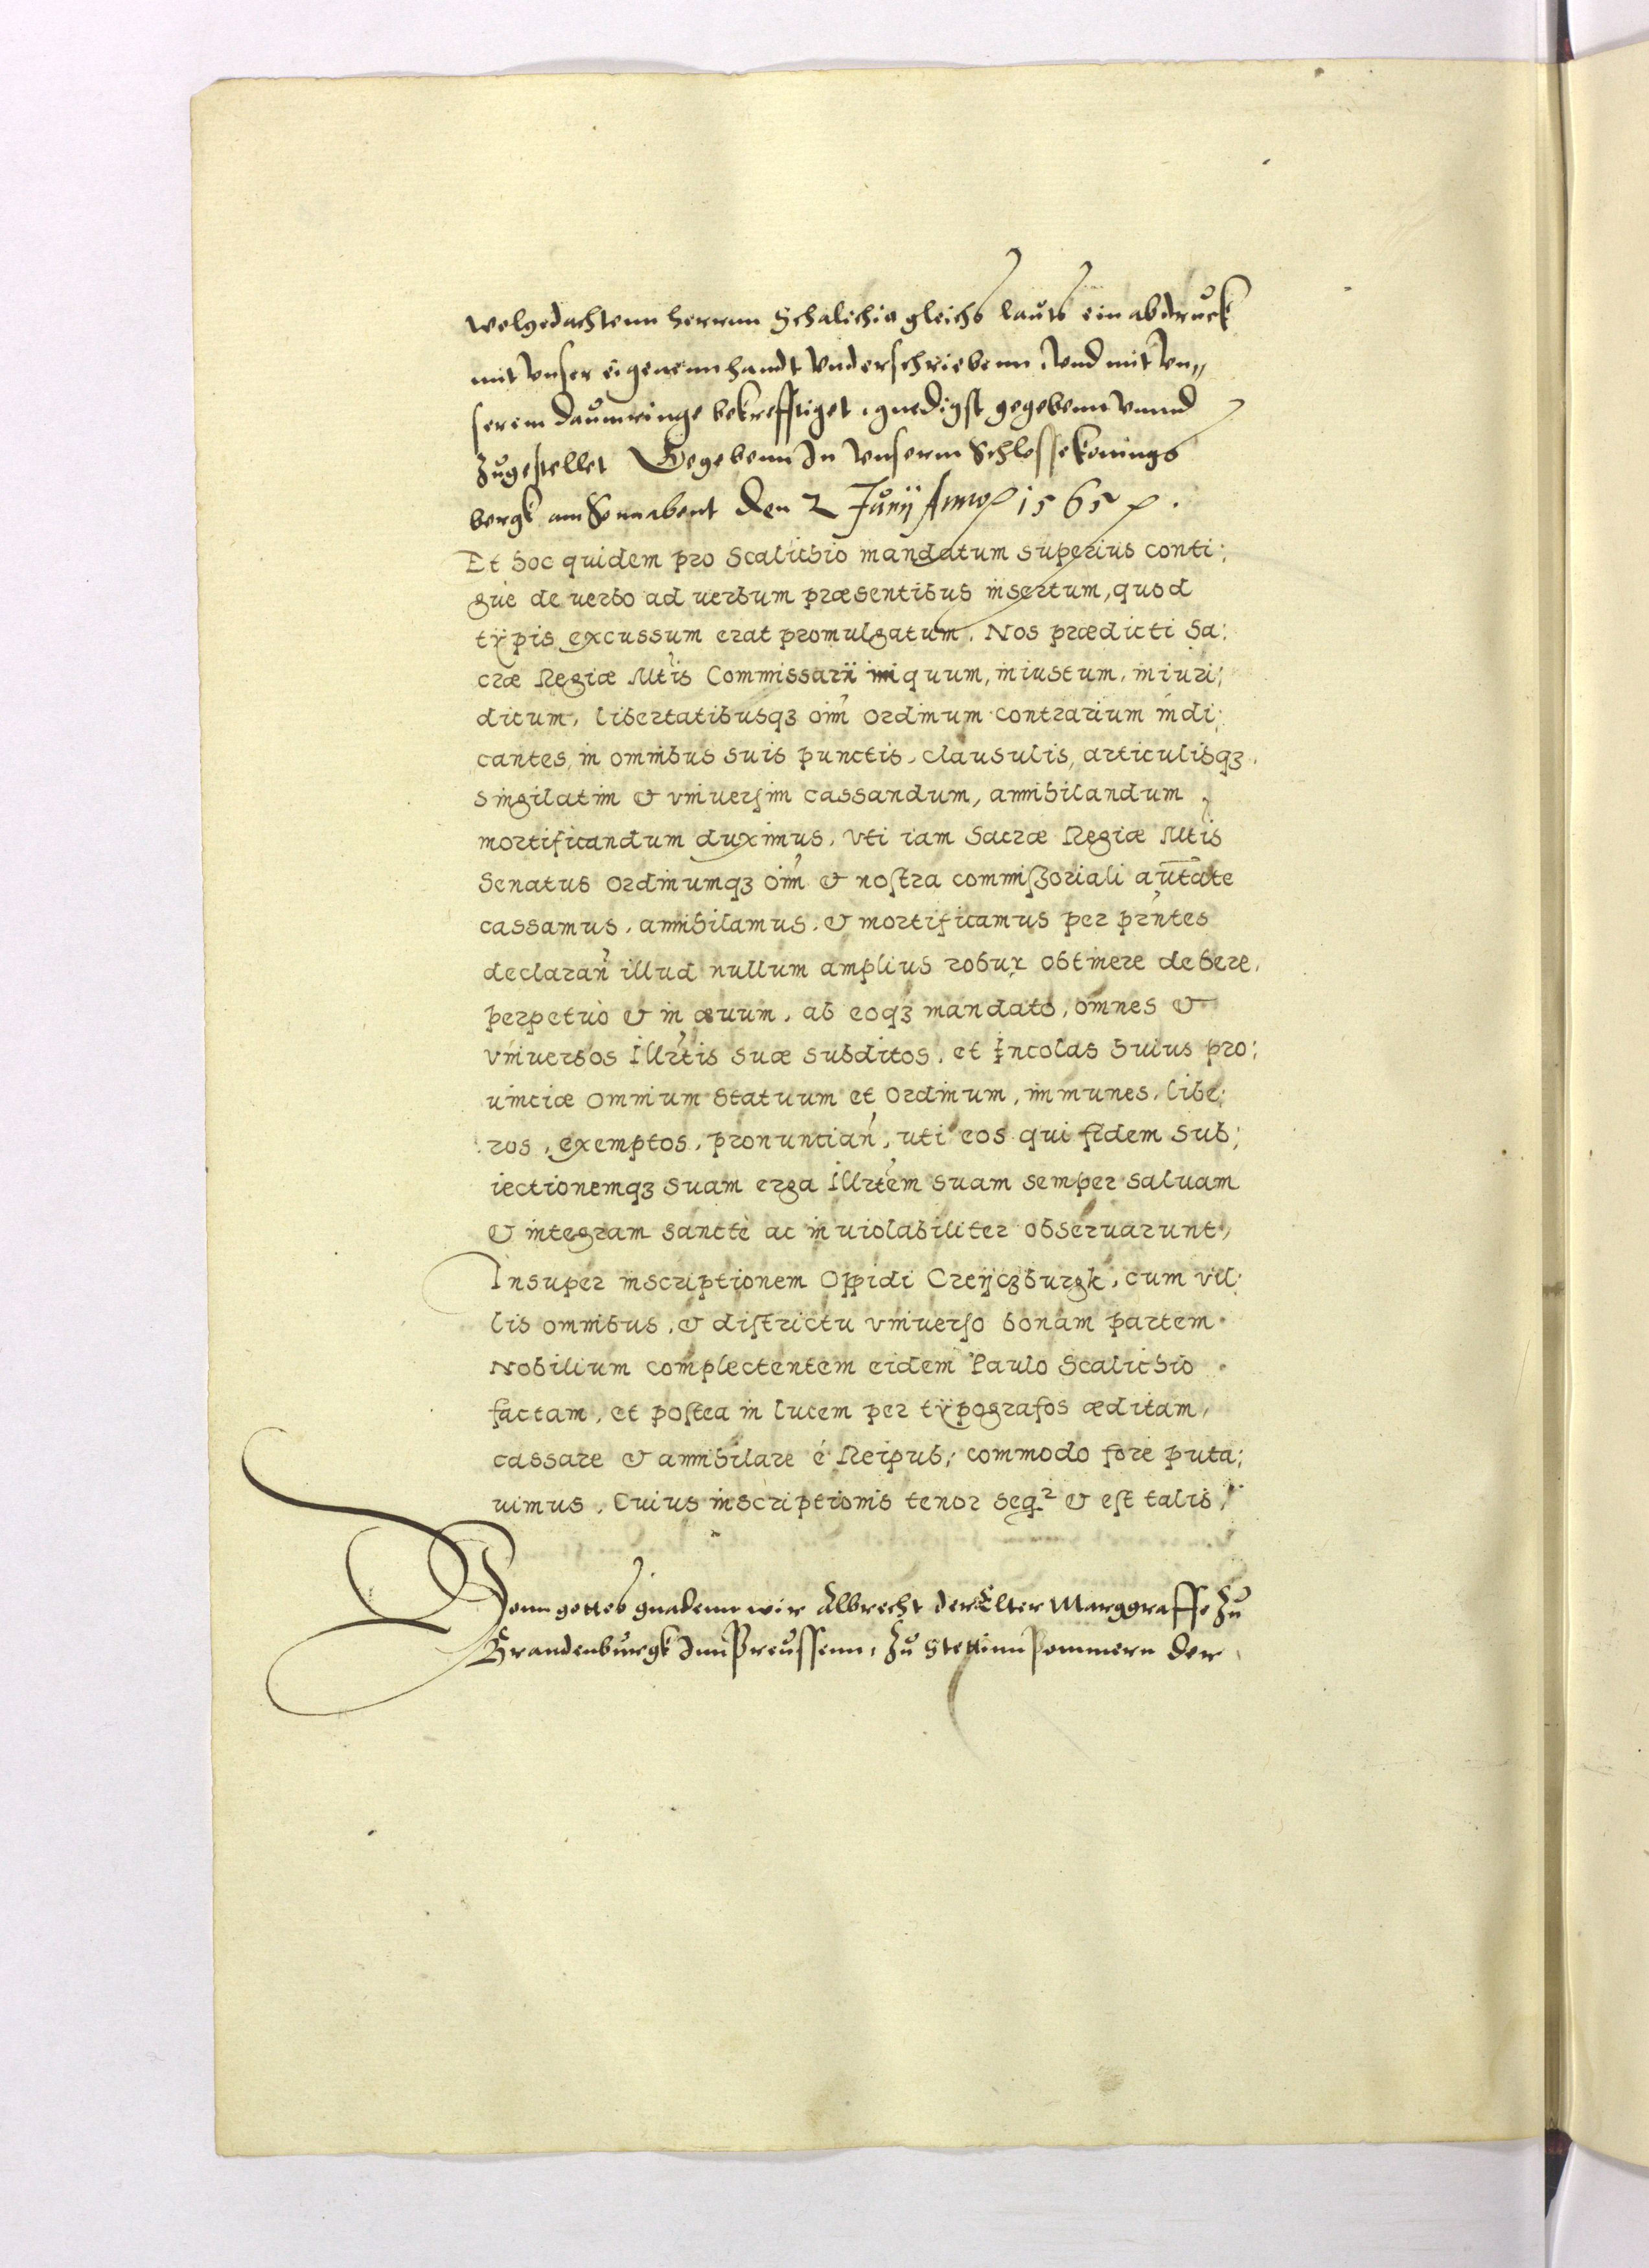 wolgedachtenn herrnn Schalichio gleichs lauts ein abdruck
mit unser eigenenn handt underschriebenn, und mit un„
serem daumringe bekrefftiget, gnedigst gegebenn unnd
zugestellet Gegebenn In unserm Schlosse Konings
bergk am Sonnabent den 2 Junij Anno 1565.
Et hoc quidem pro Scalichio mandatum superius conti:
guè de verbo ad uerbum præsentibus insertum, quod
tÿpis excussum erat promulgatum. Nos prædicti Sa:
cræ Regiæ Mtis Commissarii iniquum, iniustum, iniuri:
dicum, libertatibusqз oim̃ Ordinum contrarium indi:
cantes, in omnibus suis punctis, clausulis, articulisqз
singilatim & vniuersim cassandum, annihilandum,
mortificandum duximus, vti iam Sacræ Regiæ Mtis
Senatus Ordinumqз oim̃ & nostra commißoriali autate
cassamus, annihilamus, & mortificamus per prñtes
declarañ illud nullum amplius robur obtinere debere,
perpetuò & in æuum, ab eoqз mandato, omnes &
vniuersos Illrtis suæ subditos, et Incolas huius pro:
uinciæ omnium Statuum et Ordinum, immunes, libe:
ros, exemptos, pronuntiañ, uti eos qui fidem sub:
iectionemqз suam erga Illrtem suam semper saluam
& integram sanctè ac inuiolabiliter obseruarunt,
Insuper inscriptionem Oppidi Creijczburgk, cum vil:
lis omnibus, & districtu vniuerso bonam partem
Nobilium complectentem eidem Paulo Scalichio
factam, et postea in lucem per tÿpografos æditam,
cassare & annihilare é Reipub: commodo fore puta:
uimus, Cuius inscriptionis tenor seqr & est talis,
Vonn gottes gnadenn wir Albrecht der Elter Marggraffe zu
Brandenburgk Inn Preussenn, zu Stettinn Pommern der